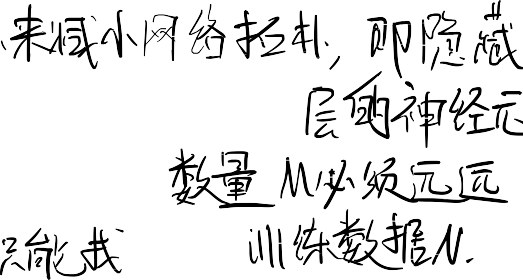 来减小网络拓扑，即隐藏
层的神经元
数量 M必须元远
只能找 训练数据N.